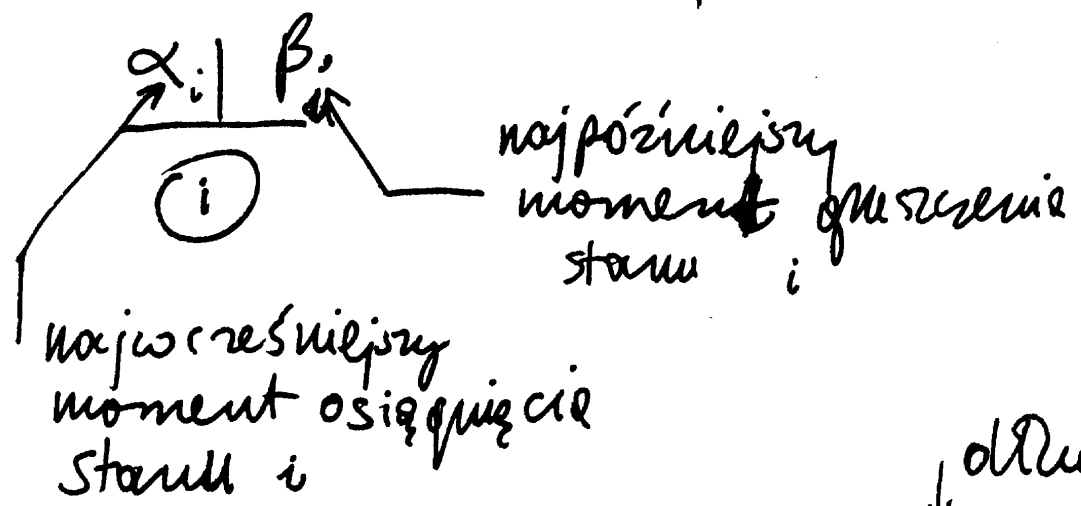 αᵢ | βᵢ
i
najpóźniejszy
moment opuszczenia
stanu i
najwcześniejszy
moment osiągnięcia
stanu i